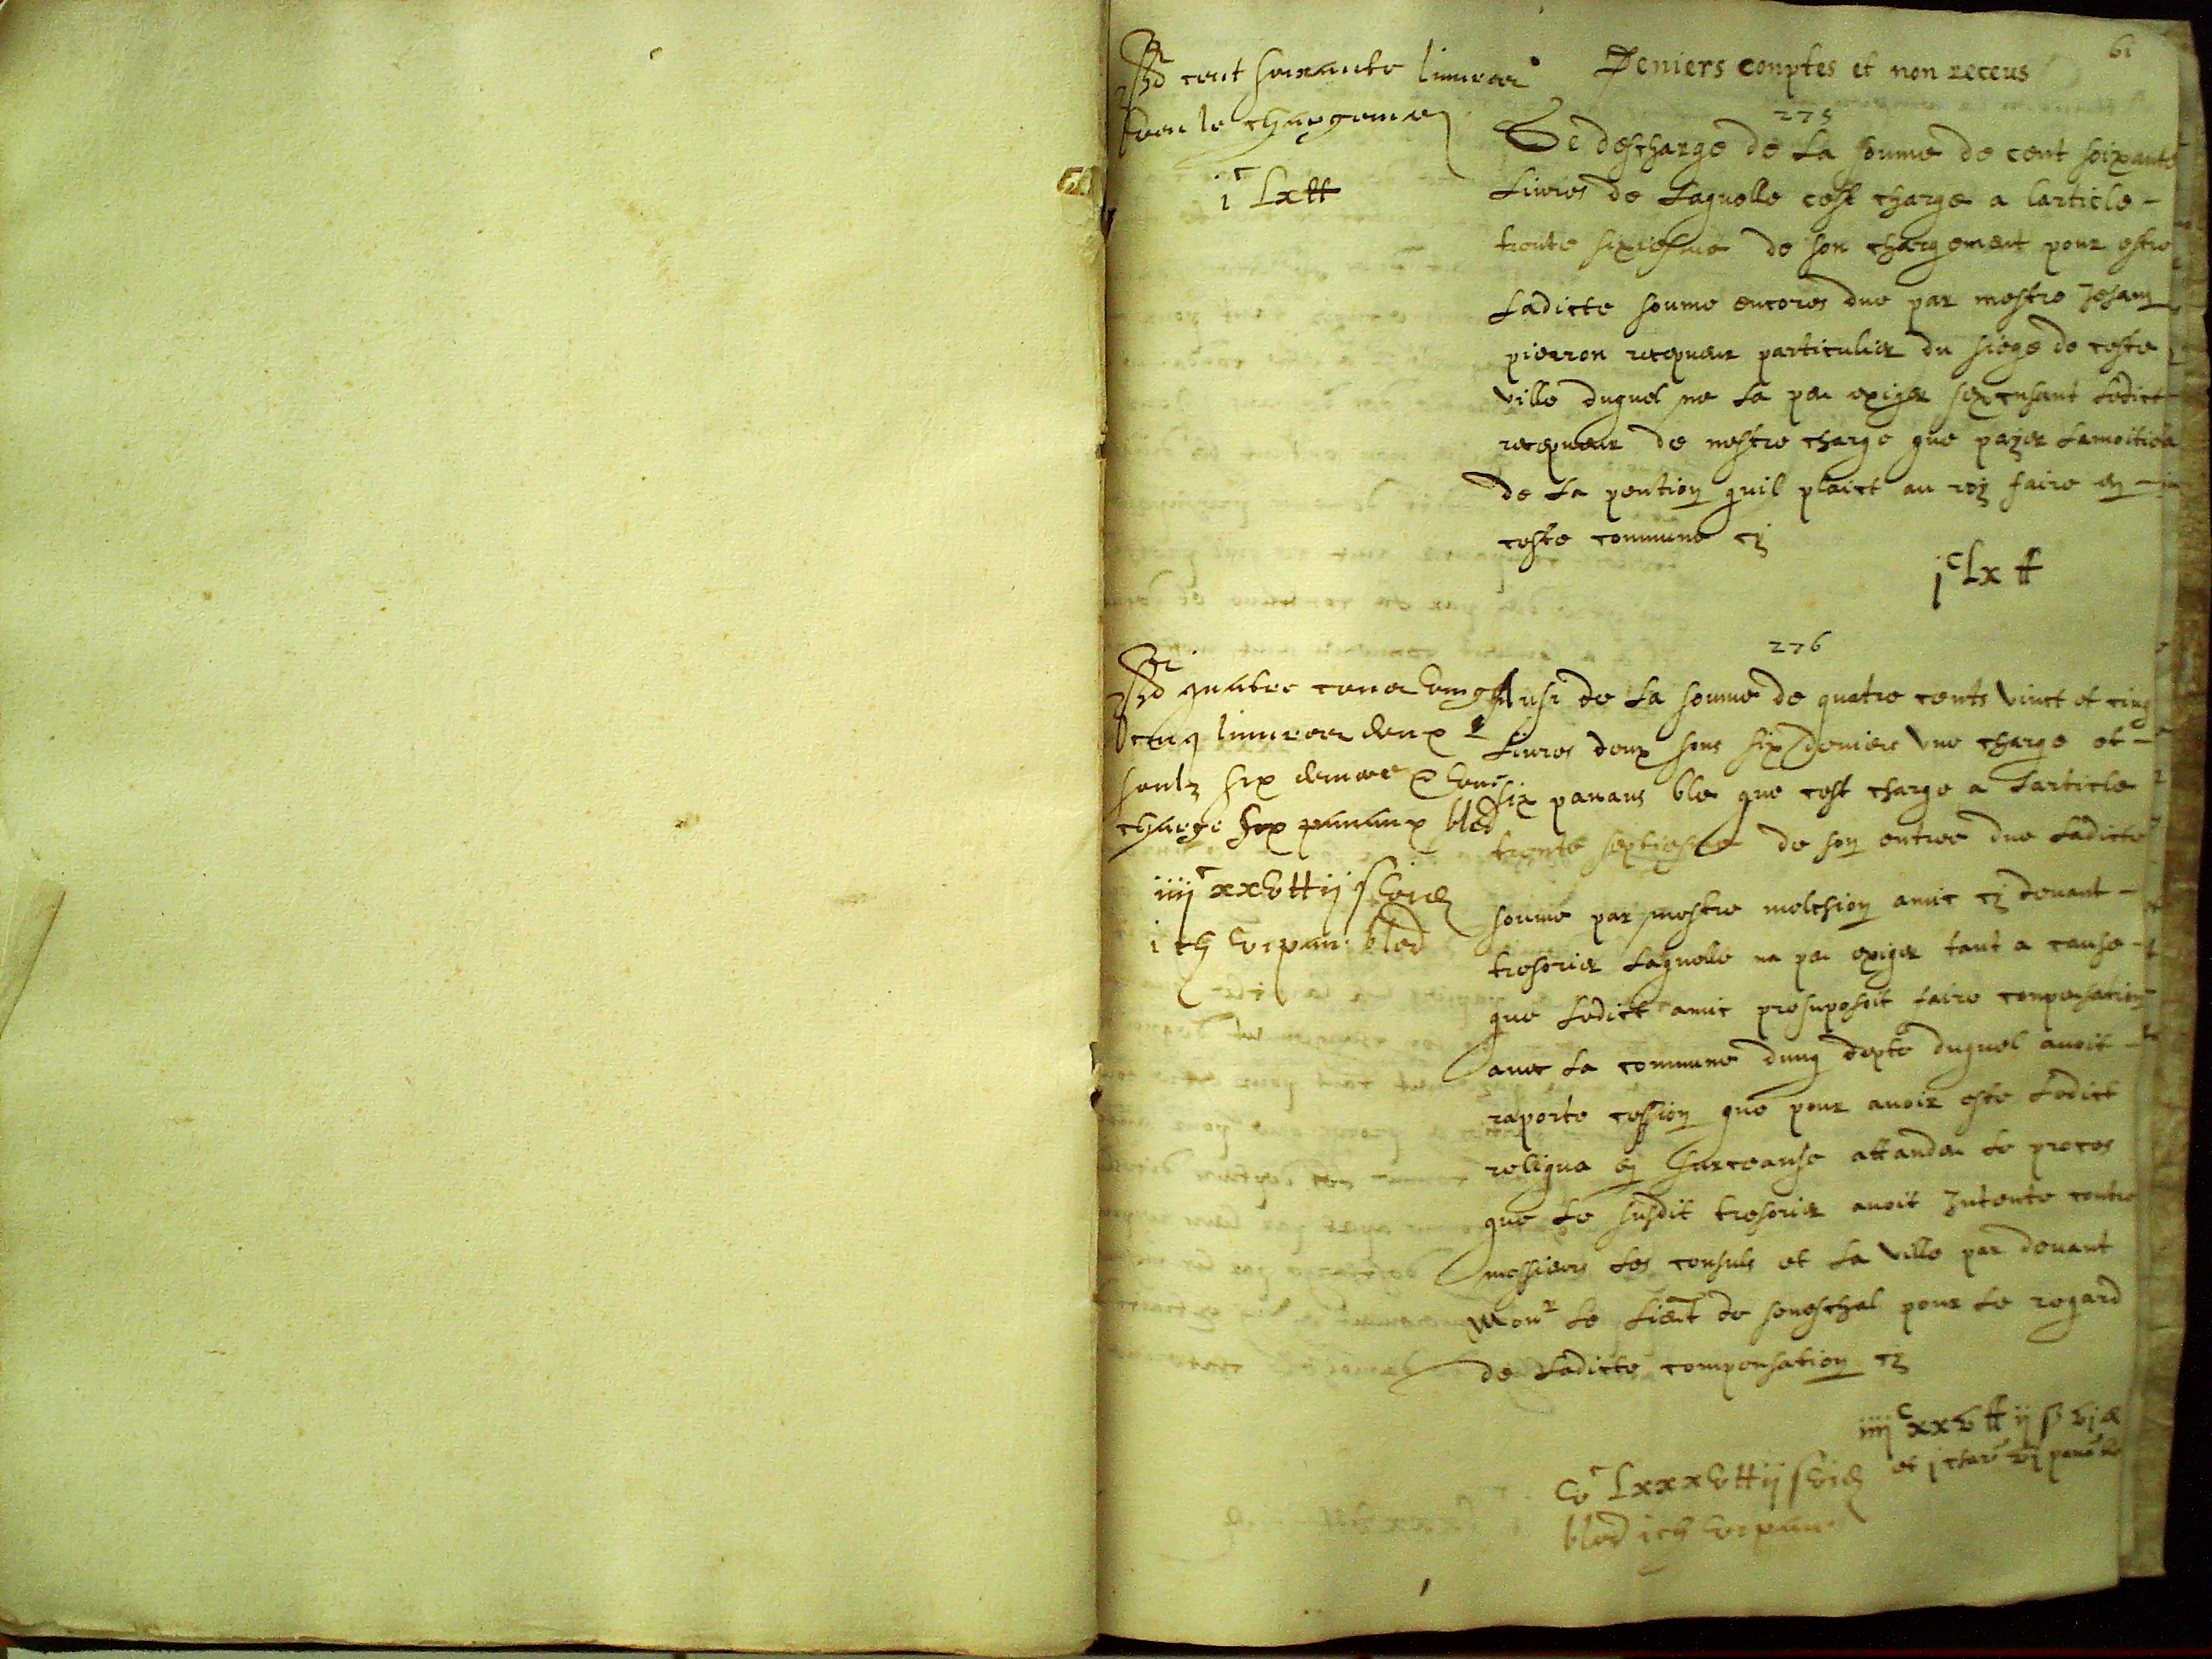 61
Deniers conptes et non receus
cent soixante livres
son chargement
i^c Lx ₶
275
Se descharge de La soume de cent soixante
Livres de Laquelle cest charge a larticle -
trente sixiesme de son chargement pour estre
Ladicte soume encores due par mestre Jehan
pierron recepueur particulier du siege de ceste
ville duquel ne La peu exiger sexcusant Ledict
recepueur de nestre charge que payer Lamoitiea
de La pention quil plaict au roy faire en -
ceste commune cy
j^c Lx ₶
276
quatre cens vingt
cinq livres deux
soulz six deniers et une
charge six panaux bled
iiij^c xxv ₶ ij s vi d
i ch vi pan. bled
Ausi de La soume de quatre cents vinct et cinq
Livres deux sous six deniers une charge et -
six panaus ble que cest charge a Larticle
trente septiesme de son entree due Ladicte
soume par mestre melchion amic cy devant -
tresorier Laquelle na peu exiger tant a cause -
que Ledict amic presuposoit faire conpensation
avec La commune dung depte duquel avoit -
raporte cession que pour avoir este Ledict
reliqua en surceanse attandeu Le proces
que Le susdit tresorier avoit Intente contre
messieurs Les consuls et La ville par devant
Mon^r Le Lieut de seneschal pour Le regard
de Ladicte compensation cy
iiij^c xxv ₶ ij s vj d
et j char vj pan ble
v^c Lxxxv ₶ ij s vi d
bled i ch vi pan